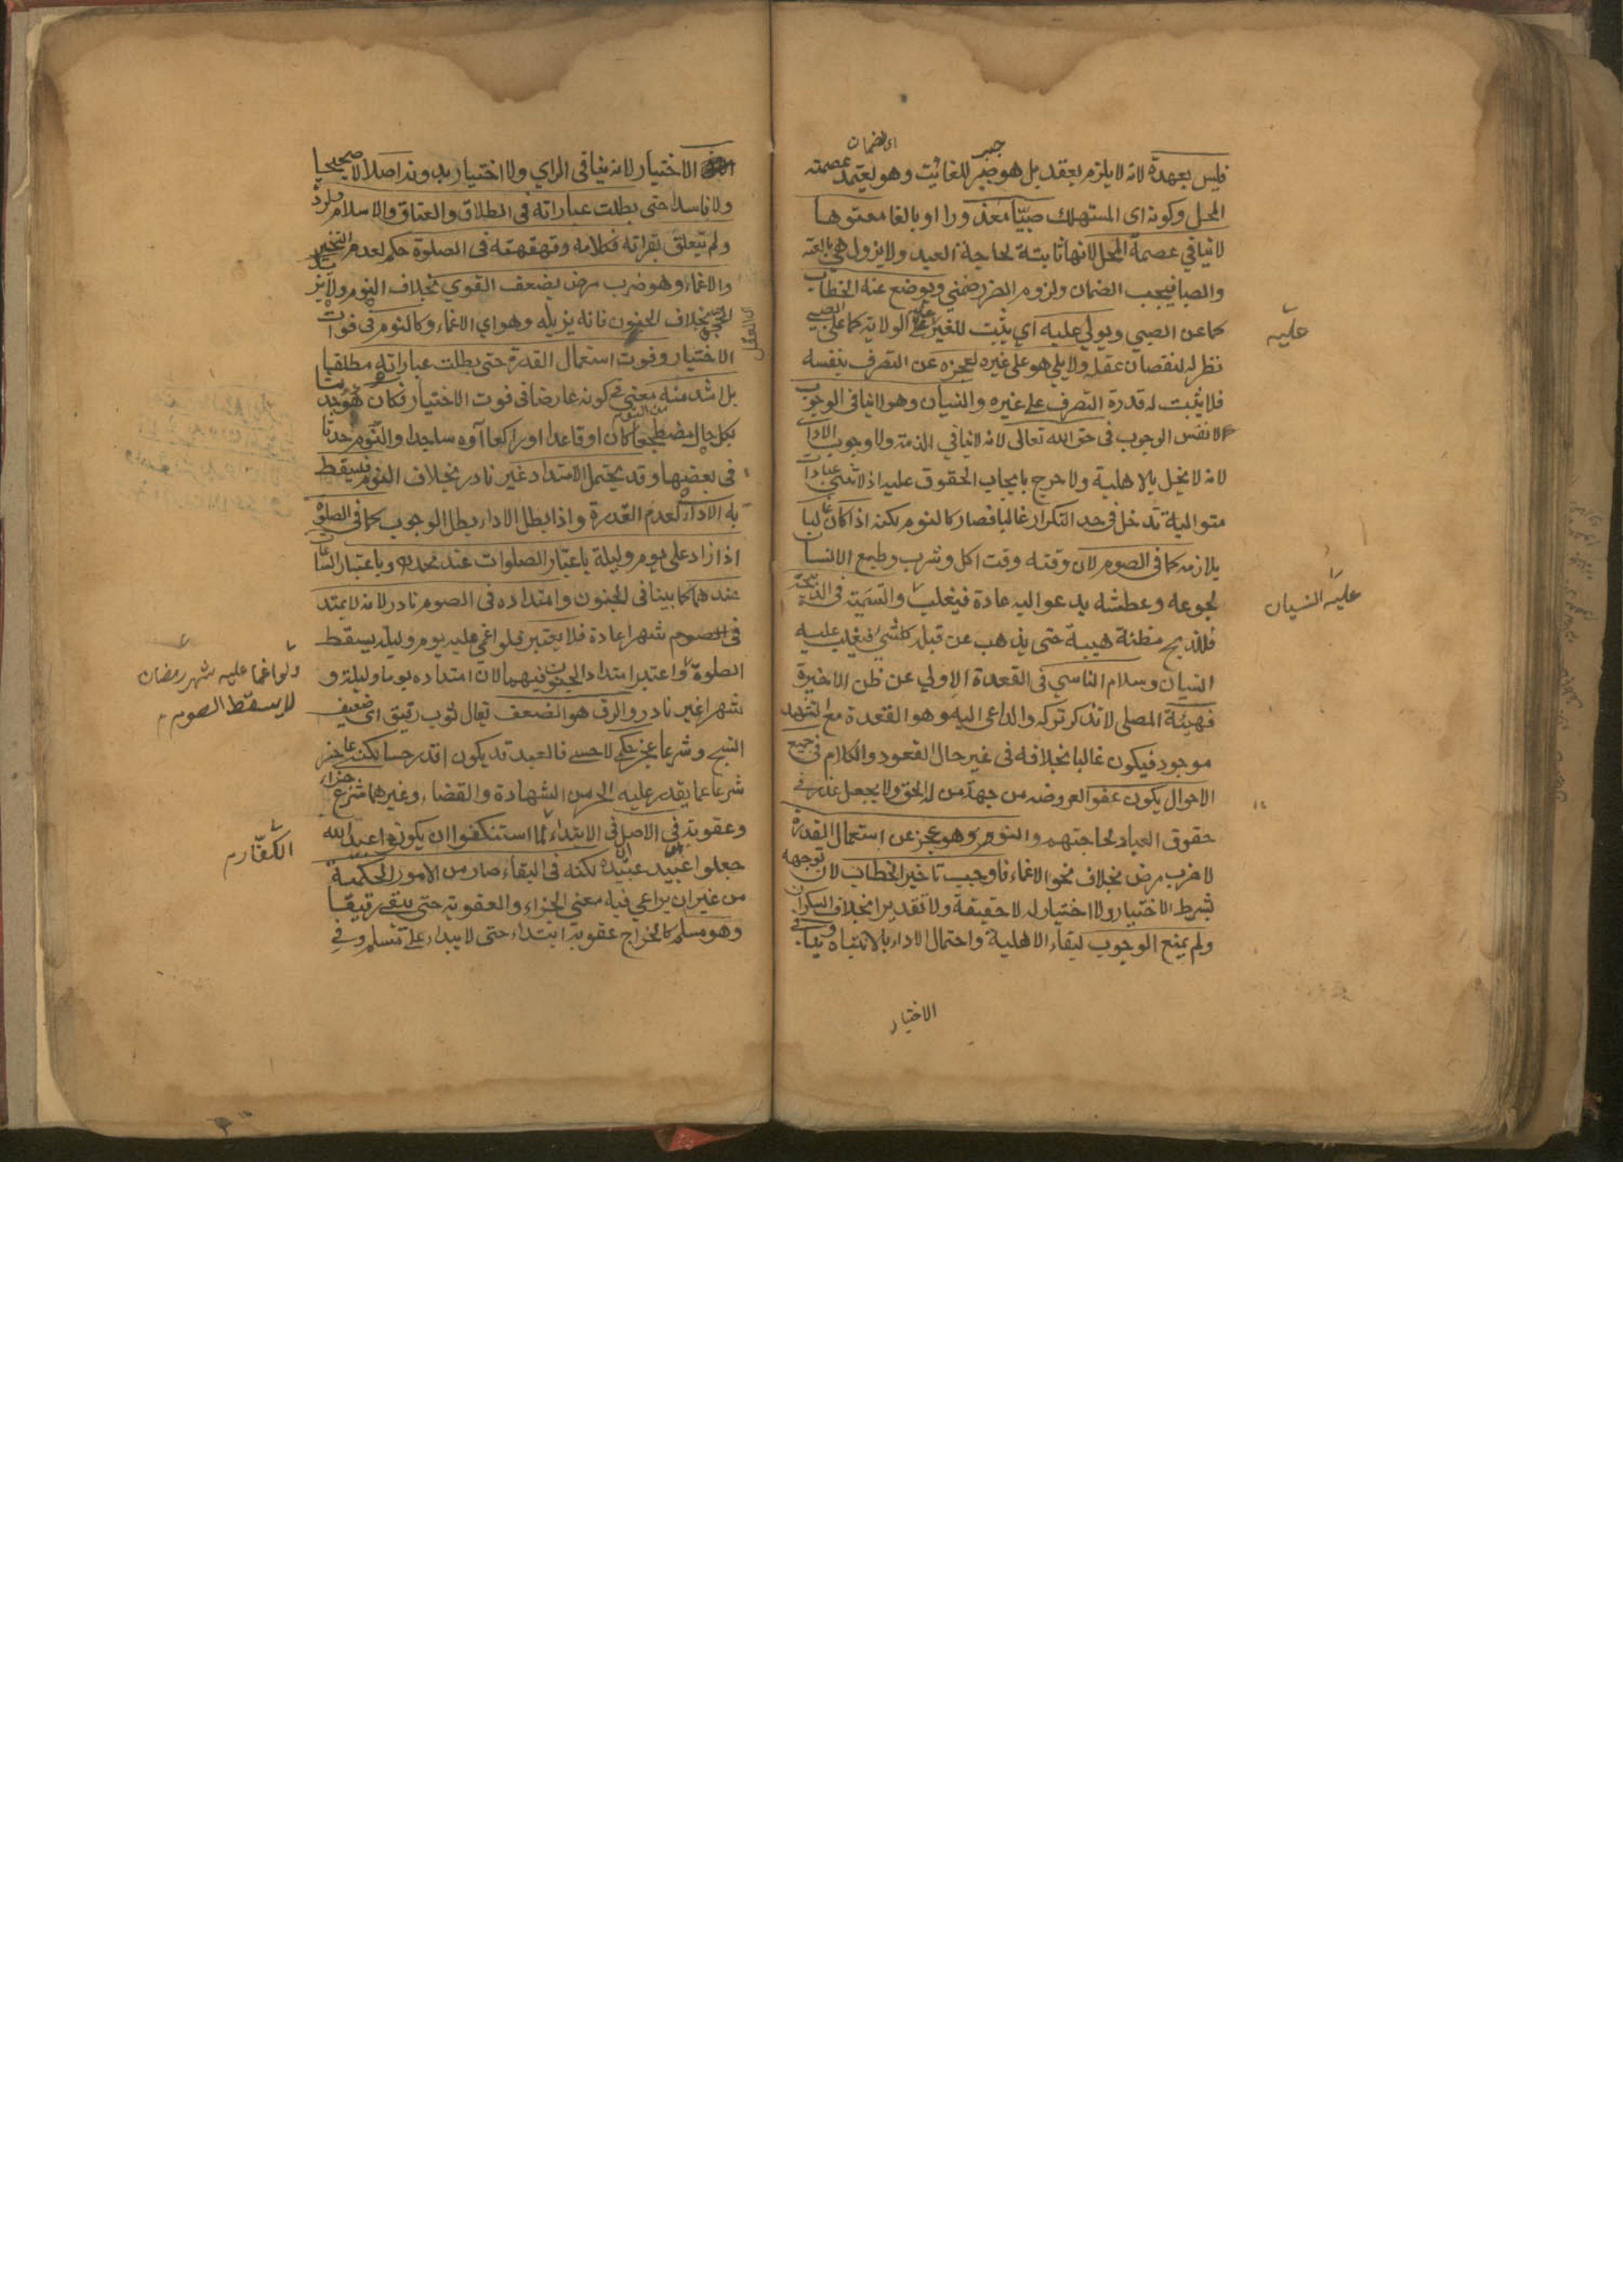 اى الضمان
جبر
فليس بعهدة لانه لا يلزم بعقد بل هو جبر للفائت وهو يعتمد عصمته
المحل وكونه اى المستهلك صبيّا معذورا او بالغا معتوها
لا ينافي عصمة المحل لانها ثابتة لحاجة العبد ولا يزول هي بالعته
والصبا فيجب الضمان ولزوم الضرر ضمني ويوضع عنه الخطاب
كما عن الصبي ويولي عليه اي يثبت للغير الولاية كما على الصبي
عليه
نظر له لنقصان عقله ولا يلي هو على غيره لعجزه عن التصرف بنفسه
فلا يثبت له قدرة التصرف على غيره والنسيان وهو لا ينافي الوجوب
لا نفس الوجوب في حق الله تعالى لانه لا ينافي الذمة ولا وجوب الادا
لانه لا يخل بالاهلية ولا حرج بايجاب الحقوق عليه اذ لا عبادات
متوالية تدخل في حد التكرار غالبا فصار كالنوم لكنه اذا كان غالبا
يلازمه كما في الصوم لان وقته وقت اكل وشرب وطبع الانسا
لجوعه وعطشه يدعو اليه عادة فيغلب والتسمية في الذبيحة
عليه النسيان
فللذبح مظنة هيبة حتى يذهب عن قبله كل شي فيغلب عليه
النسيان وسلام الناسي في القعدة الاولي عن ظن الاخيرة
فهيئة المصلى لا تذكر تركه والداعى اليه وهو القعدة مع التشهد
موجود فيكون غالبا بخلافه في غير حال القعود والكلام في جميع
الاحوال يكون عفوا لعروضه من جهة من له الحق ولا يجعل عذرا في
حقوق العباد لحاجتهم والنوم وهو عجز عن استعمال القدرة
لا ضرب مرض بخلاف نحو الاغماء فاوجب تاخير الخطاب لان توجهه
بشرط الاختيار ولا اختيار له لا حقيقة ولا تقديرا بخلاف السكران
ولم يمنع الوجوب لبقاء الاهلية واحتمال الاداء بالانتباه وينافي
الاختيار
الاختيار لانه ينافي الراي ولا اختيار بدونه اصلا لا صحيحا
ولا فاسدا حتى بطلت عباراته في الطلاق والعتاق والاسلام والردة
ولم يتعلق بقراته وكلامه وقهقهته في الصلوة حكم لعدم التخيير
والاغماء وهو ضرب مرض يضعف القوي بخلاف النوم ولا يزيل
الحجى بخلاف الجنون فانه يزيله وهو اي الاغماء كالنوم في فوات
اى العقل
الاختيار وفوت استعمال القدرة حتى بطلت عباراته مطلقا
بل اشد منه معني في كونه عارضا في فوت الاختيار فكان هو حدثا
من النوم
بكل حال مضطجعا كان او قاعدا او راكعا او ساجدا والنوم حدثا
في بعضها وقد يحتمل الامتداد غير نادر بخلاف النوم فيسقط
به الاداء لعدم القدرة واذا بطل الاداء بطل الوجوب كما في الصلوة
اذا زاد على يوم وليلة باعتبار الصلوات عند محمد وباعتبار الساعات
عندهما كما بينا في الجنون وامتداده في الصوم نادر لانه لا يمتد
في الصوم شهرا عادة فلا يعتبر فلو اغمي عليه يوم وليله يسقط
ولو اغما عليه شهر رمضان
لا يسقط الصوم م
الصلوة واعتبر امتداد الجنون فيهما لان امتداده يوما وليلة و
شهرا غير نادر والرق هو الضعف يقال ثوب رقيق اى ضعيف
النسج وشرعا عجز حكمي لا حسي فالعبد قد يكون اقدر حسا لكنه عاجز
شرعا عما يقدر عليه الحر من الشهادة والقضاء وغيرهما شرع جزاء
وعقوبة في الاصل في الابتداء لما استنكفوا ان يكونوا عبيد الله
الكفّار م
جعلوا عبيد عبيده لكنه في البقاء صار من الامور الحكمية
من غير ان يراعي فيه معني الجزاء والعقوبة حتى يبقى رقيقا
وهو مسلم كالخراج عقوبة ابتداء حتى لا يبداء على مسلم وفي